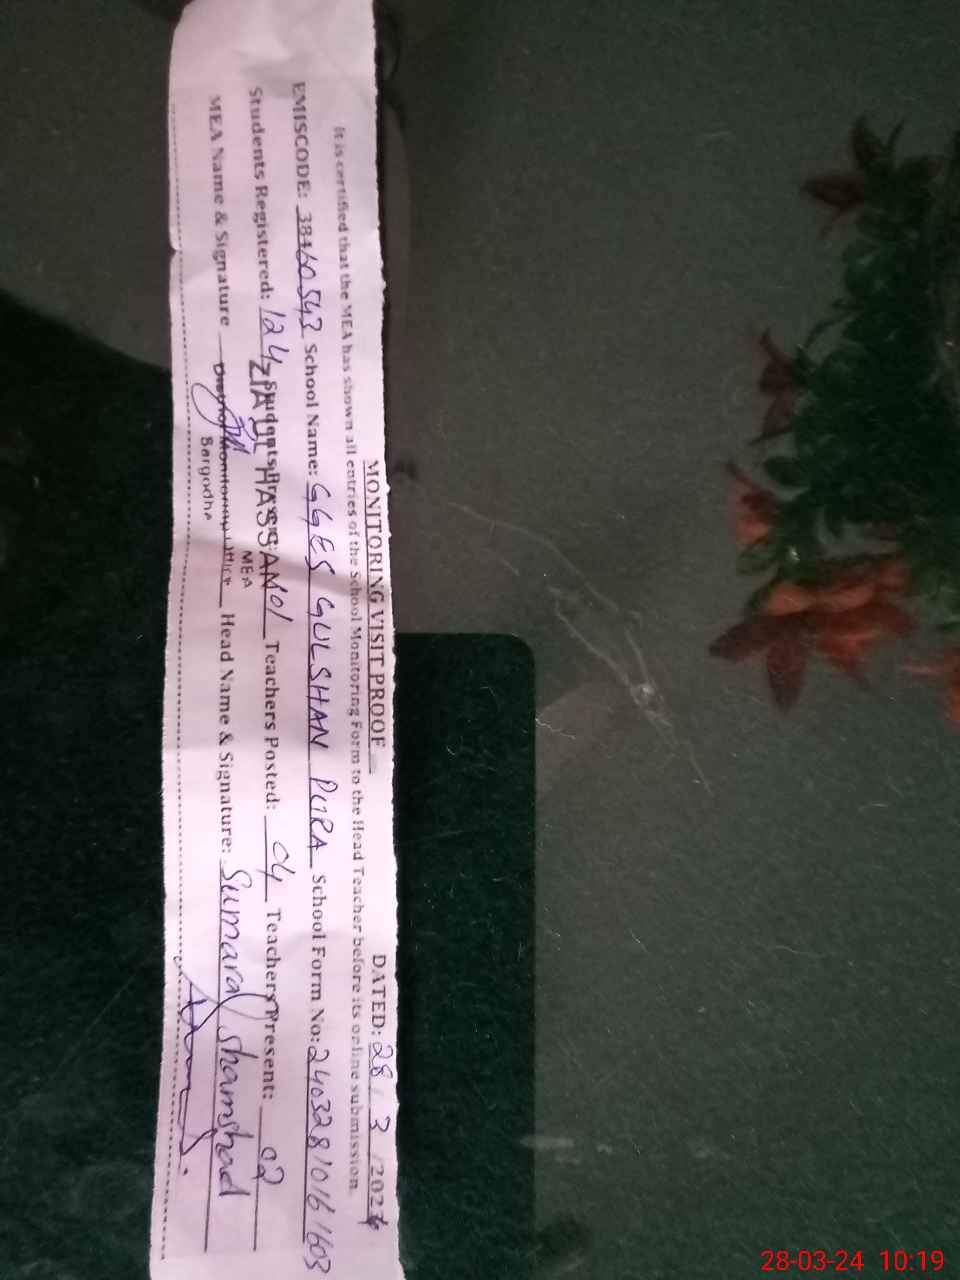 MONITORING VISIT PROOF DATED: 28 / 3 / 2024
It is certified that the MEA has shown all entries of the School Monitoring Form to the Head Teacher before its online submission.
EMISCODE: 38460543 School Name: GGES GULSHAN PURA School Form No: 24032810161603
Students Registered: 124 Students Present: 101 Teachers Posted: 04 Teachers Present: 02
ZIA UL HASSAN
MEA
MEA Name & Signature Head Name & Signature: Sumara shamshad
District Monitoring Office
Sargodha
28-03-24 10:19